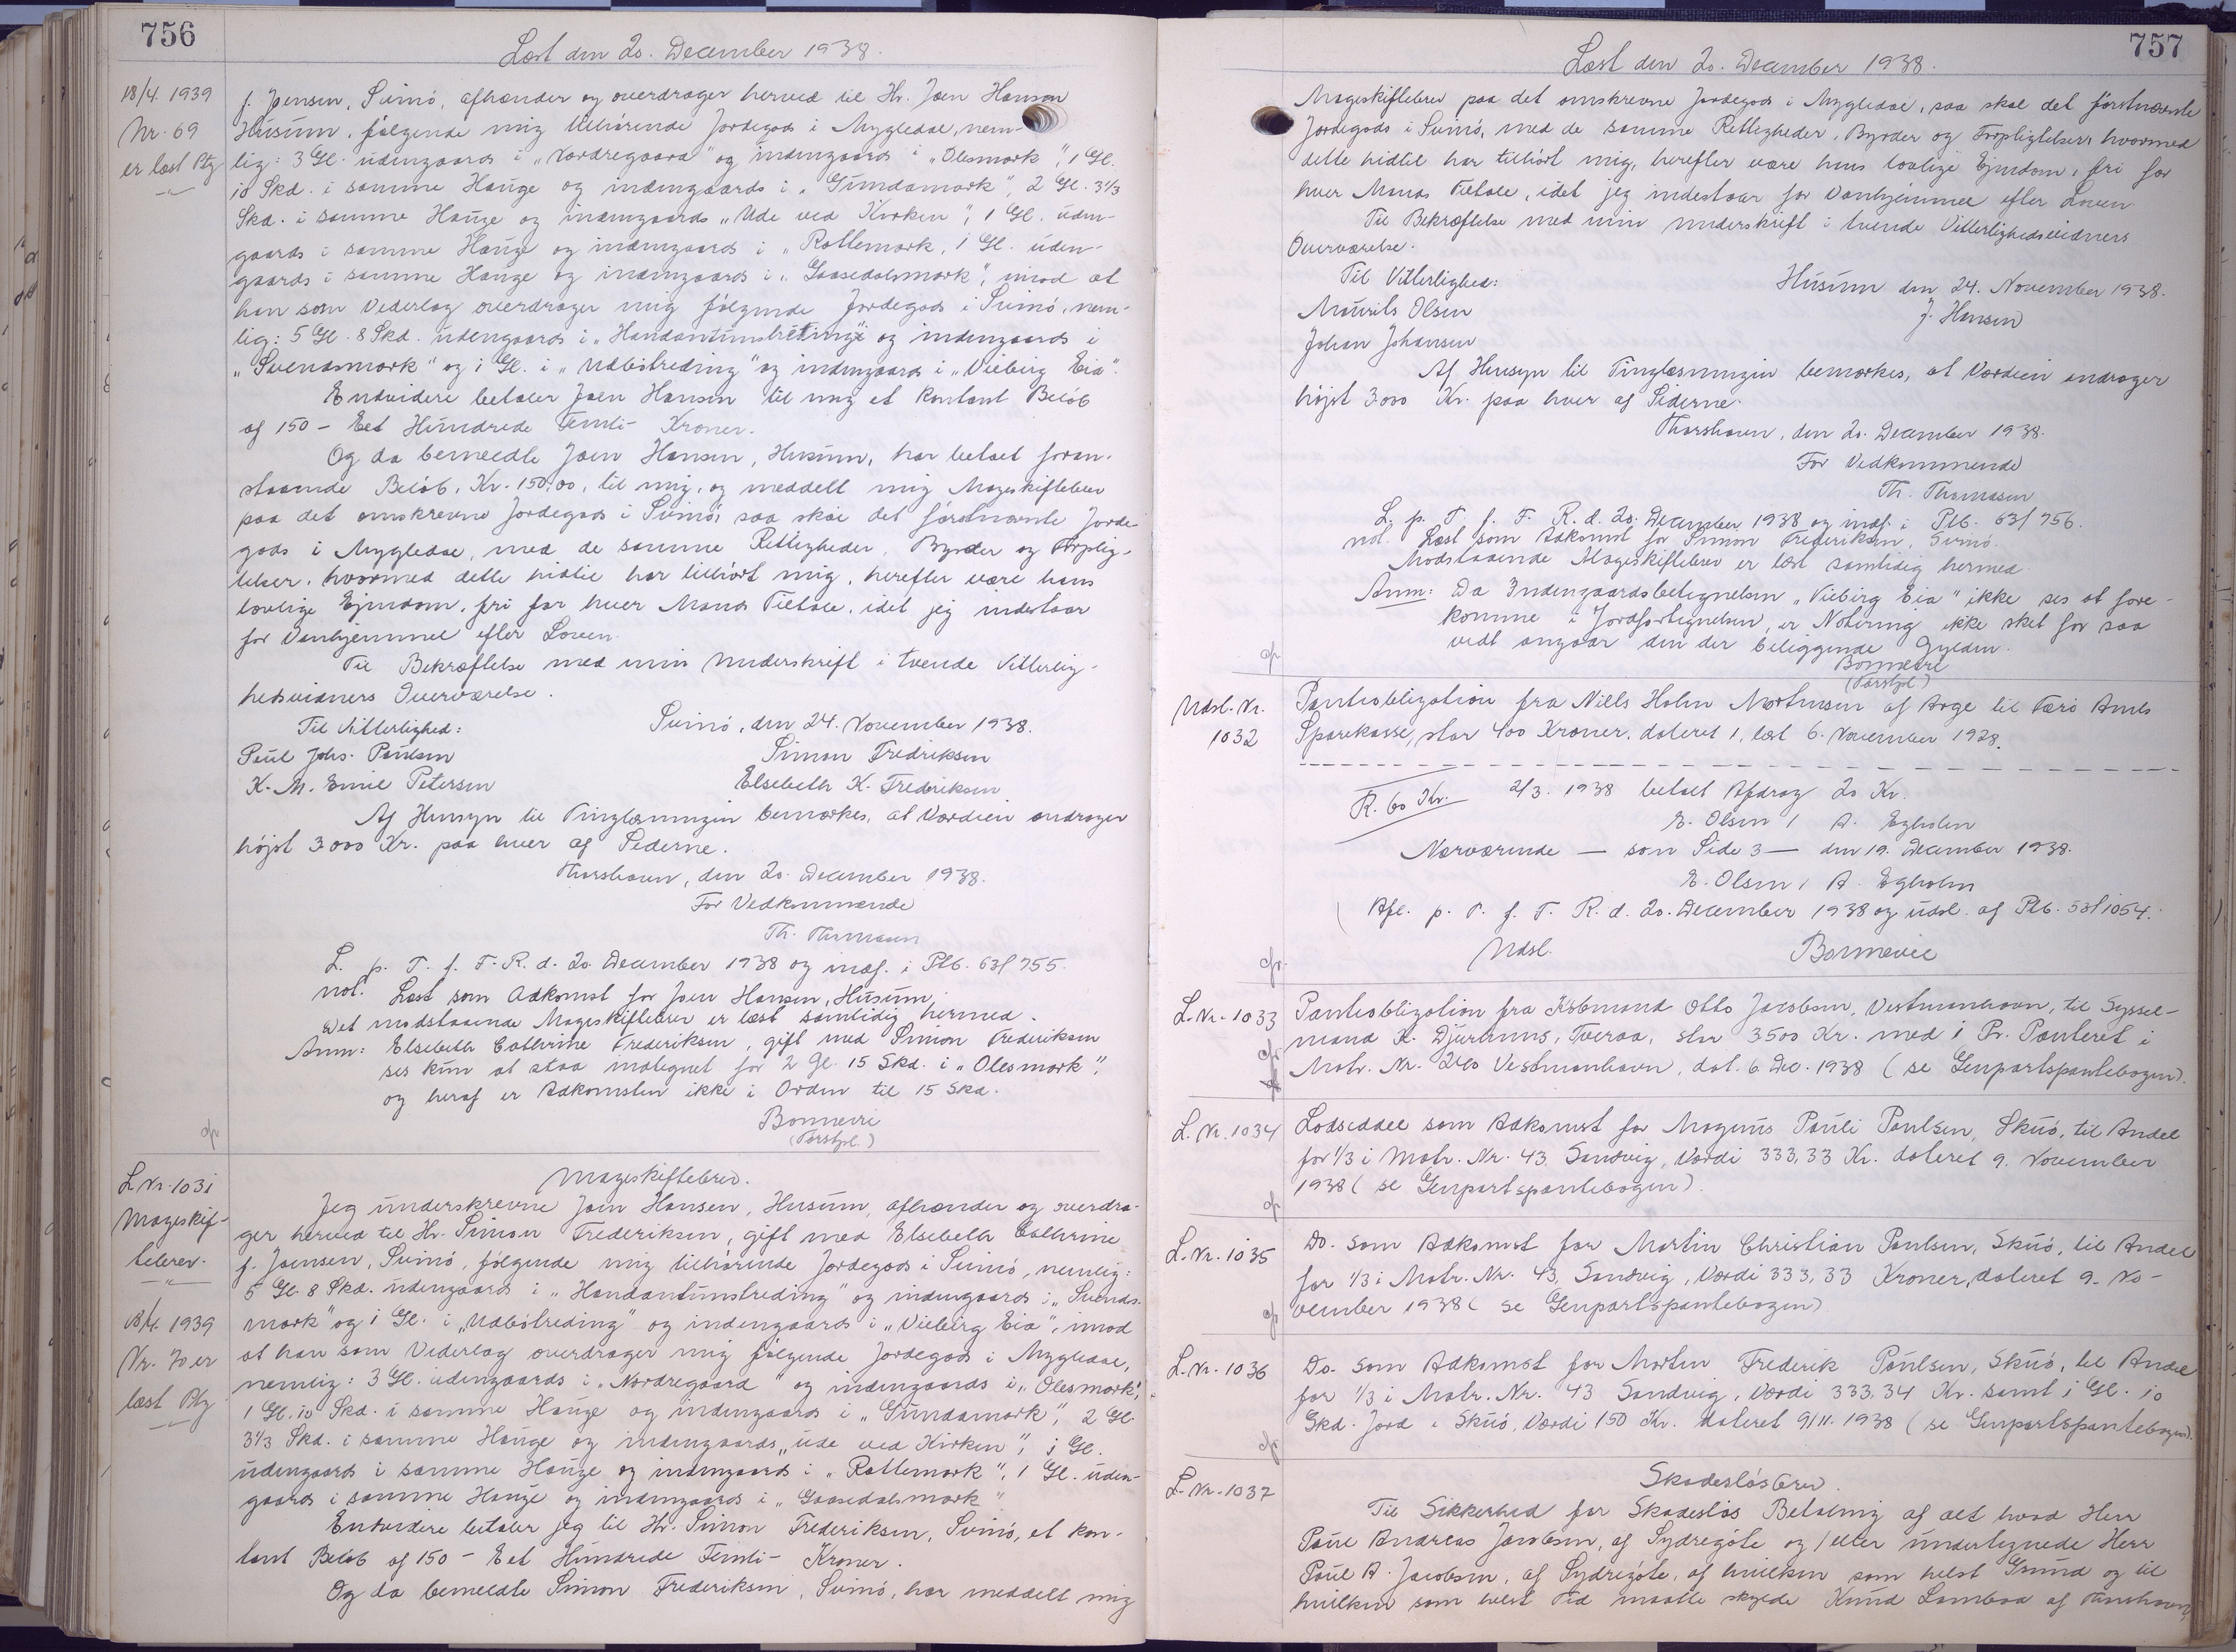 756
Læst den 20. December 1938.
18/4. 1939
Nr. 69
er læst Ptg
f. Joensen, Svinó, afhænder og overdrager herved til Hr. Joen Hansen
Húsúm, følgende mig tilhørende Jordegods i Mygledal, nem-
lig: 3 Gl. údengaards i „Nordregaard" og indengaards i „Olesmark", 1 Gl.
10 Skd. i samme Haúge og indengaards i „Gúndamark", 2 Gl. 3 1/3
Skd. i samme Haúge og indengaards „Ude ved Kirken", 1 Gl. úden-
gaards i samme Haúge og indengaards i „Rottemark, 1 Gl. úden-
gaards i samme Haúge og indengaards i „Gaasedalsmark", imod at
han som Vederlag overdrager mig følgende Jordegods i Svinó, nem-
lig: 5 Gl. 8 Skd. údengaards i „Handantúnstreding" og indengaards i
„Svendsmark" og 1 Gl. i „Udbótreding" og indengaards i „Viebirg Eia".
Endvidere betaler Joen Hansen til mig et kontant Beløb
af 150 - Eet Húndrede Femti - Kroner.
Og da bemeldte Joen Hansen, Húsúm, har betalt foran-
staaende Beløb, Kr. 150,00, til mig, og meddelt mig Mageskiftebrev
paa det omskrevne Jordegods i Svinó, saa skal det førstnævnte Jorde-
gods i Mygledal, med de samme Rettigheder, Byrder og Forplig-
telser, hvormed dette hidtil har tilhørt mig, herefter være hans
lovlige Ejendom, fri for hver Mands Tiltale, idet jeg indestaar
for Vanhjemmel efter Loven.
Til Bekræftelse med min Underskrift i tvende Vitterlig-
hedsvidners Overværelse.
Til Vitterlighed:
Svinó, den 24. November 1938.
Poul Johs. Poulsen
Simon Fredriksen
K. M. Emil Petersen
Elsebeth K. Frederiksen
Af Hensyn til Tinglæsningen bemærkes, at Værdien andrager
højst 3000 Kr. paa hver af Siderne.
Thorshavn, den 20. December 1938.
For Vedkommende
Th. Thomasen
L. p. T. f. F. R. d. 20. December 1938 og indf. i Ptb. 63/755.
not. Læst som Adkomst for Joen Hansen, Húsúm.
Det modstaaende Mageskiftebrev er læst samtidig hermed.
Anm: Elsebeth Cathrine Frederiksen, gift med Simon Frederiksen
ses kún at staa indtegnet for 2 Gl. 15 Skd. i „Olesmark",
og heraf er Adkomsten ikke i Orden til 15 Skd.
Bornevie
(Forstpl.)
L. Nr. 1031
Mageskif-
tebrev.
18/4. 1939
Nr. 70 er
læst Ptg
Mageskiftebrev.
Jeg únderskrevne Joen Hansen, Húsúm, afhænder og overdra-
ger herved til Hr. Simon Frederiksen, gift med Elsebeth Cathrine
f. Joensen, Svinó, følgende mig tilhørende Jordegods i Svinó, nemlig:
5 Gl. 8 Skd. údengaards i „Handantúnstreding" og indengaards i „Svends-
mark" og 1 Gl. i „Udbótreding" og indengaards i „Viebirg Eia", imod
at han som Vederlag overdrager mig følgende Jordegods i Mygledal,
nemlig: 3 Gl. údengaards i „Nordregaard" og indengaards i „Olesmark",
1 Gl. 10 Skd. i samme Haúge og indengaards i „Gúndamark", 2 Gl.
3 1/3 Skd. i samme Haúge og indengaards „úde ved Kirken", 1 Gl.
údengaards i samme Haúge og indengaards i „Rottemark", 1 Gl. úden-
gaards i samme Haúge og indengaards i „Gaasedalsmark"
Endvidere betaler jeg til Hr. Simon Frederiksen, Svinó, et kon-
tant Beløb af 150 - Eet Húndrede Femti - Kroner.
Og da bemeldte Simon Frederiksen, Svinó, har meddelt mig
757
Læst den 20. December 1938.
Mageskiftebrev paa det omskrevne Jordegods i Mygledal, saa skal det førstnævnte
Jordegods i Svinó, med de samme Rettigheder, Byrder og Forpligtelser, hvormed
dette hidtil har tilhørt mig, herefter være hans lovlige Ejendom, fri for
hver Mands Tiltale, idet jeg indestaar for Vanhjemmel efter Loven
Til Bekræftelse med min underskrift i tvende Vitterlighedsvidners
Overværelse.
Til Vitterlighed:
Húsúm den 24. November 1938.
Moúrits Olsen
J. Hansen
Johan Johansen
Af Hensyn til Tinglæsningen bemærkes, at Værdien andrager
højst 3000 Kr. paa hver af Siderne.
Thorshavn, den 20. December 1938.
For Vedkommende
Th. Thomasen
L. p. T. f. F. R. d. 20. December 1938 og indf. i Ptb. 63/756.
not. Læst som Adkomst for Simon Frederiksen, Svinó.
Modstaaende Mageskiftebrev er læst samtidig hermed.
Anm: Da Indengaardsbetegnelsen „Viebirg Eia" ikke ses at fore-
komme i Jordfortegnelsen, er Notering ikke sket for saa
vidt angaar den der beliggende Gylden.
Bornevie
(Forstpl.)
Udsl. Nr.
1032
Panteobligation fra Niels Holm Mortensen af Arge til Færø Amts
Sparekasse, stor 400 Kroner, dateret 1, læst 6. November 1928.
R. 60 Kr.
2/3. 1938 betalt Afdrag 20 Kr.
E. Olsen / A. Egholm
Nærværende — som Side 3 — den 19. December 1938.
E. Olsen / A. Egholm
Afl. p. T. f. F. R. d. 20. December 1938 og údsl. af Ptb. 53/1054.
Udsl.
Bornevie
L. Nr. 1033
Panteobligation fra Købmand Otto Jacobsen, Vestmanhavn, til Syssel-
mand K. Djurhuus, Tveraa, stor 3500 Kr. med 1 Pr. Panteret i
Matr. Nr. Vestmanhavn, dat. 6. Dec. 1938 (se Genpartspantebogen).
L. Nr. 1034
Lodseddel som Adkomst for Magnús Paúli Poulsen, Skúó, til Andel
for 1/3 i Matr. Nr. 43 Sandvig, Værdi 333,33 Kr. dateret 9. November
1938 (se Genpartspantebogen).
L. Nr. 1035
Do. som Adkomst for Martin Christian Poulsen, Skúó, til Andel
for 1/3 i Matr. Nr. 43, Sandvig, Værdi 333,33 Kroner, dateret 9. No-
vember 1938 (se Genpartspantebogen)
L. Nr. 1036
Do. som Adkomst for Morten Frederik Poúlsen, Skúó, til Andel
for 1/3 i Matr. Nr. 43 Sandvig, Værdi 333,34 Kr. samt 1 Gl. 10
Skd. Jord i Skúó, Værdi 150 Kr. dateret 9/11. 1938 (se Genpartspantebogen).
L. Nr. 1037
Skadesløsbrev.
Til Sikkerhed for Skadesløs Betaling af alt hvad Herr
Poúl Andreas Jacobsen, af Sydregøte og / eller úndertegnede Herr
Poúl A. Jacobsen, af Sydregøte, af hvilken som helst Grúnd og til
hvilken som helst Tid maatte skylde Knúd Lamhaa af Thorshavn,